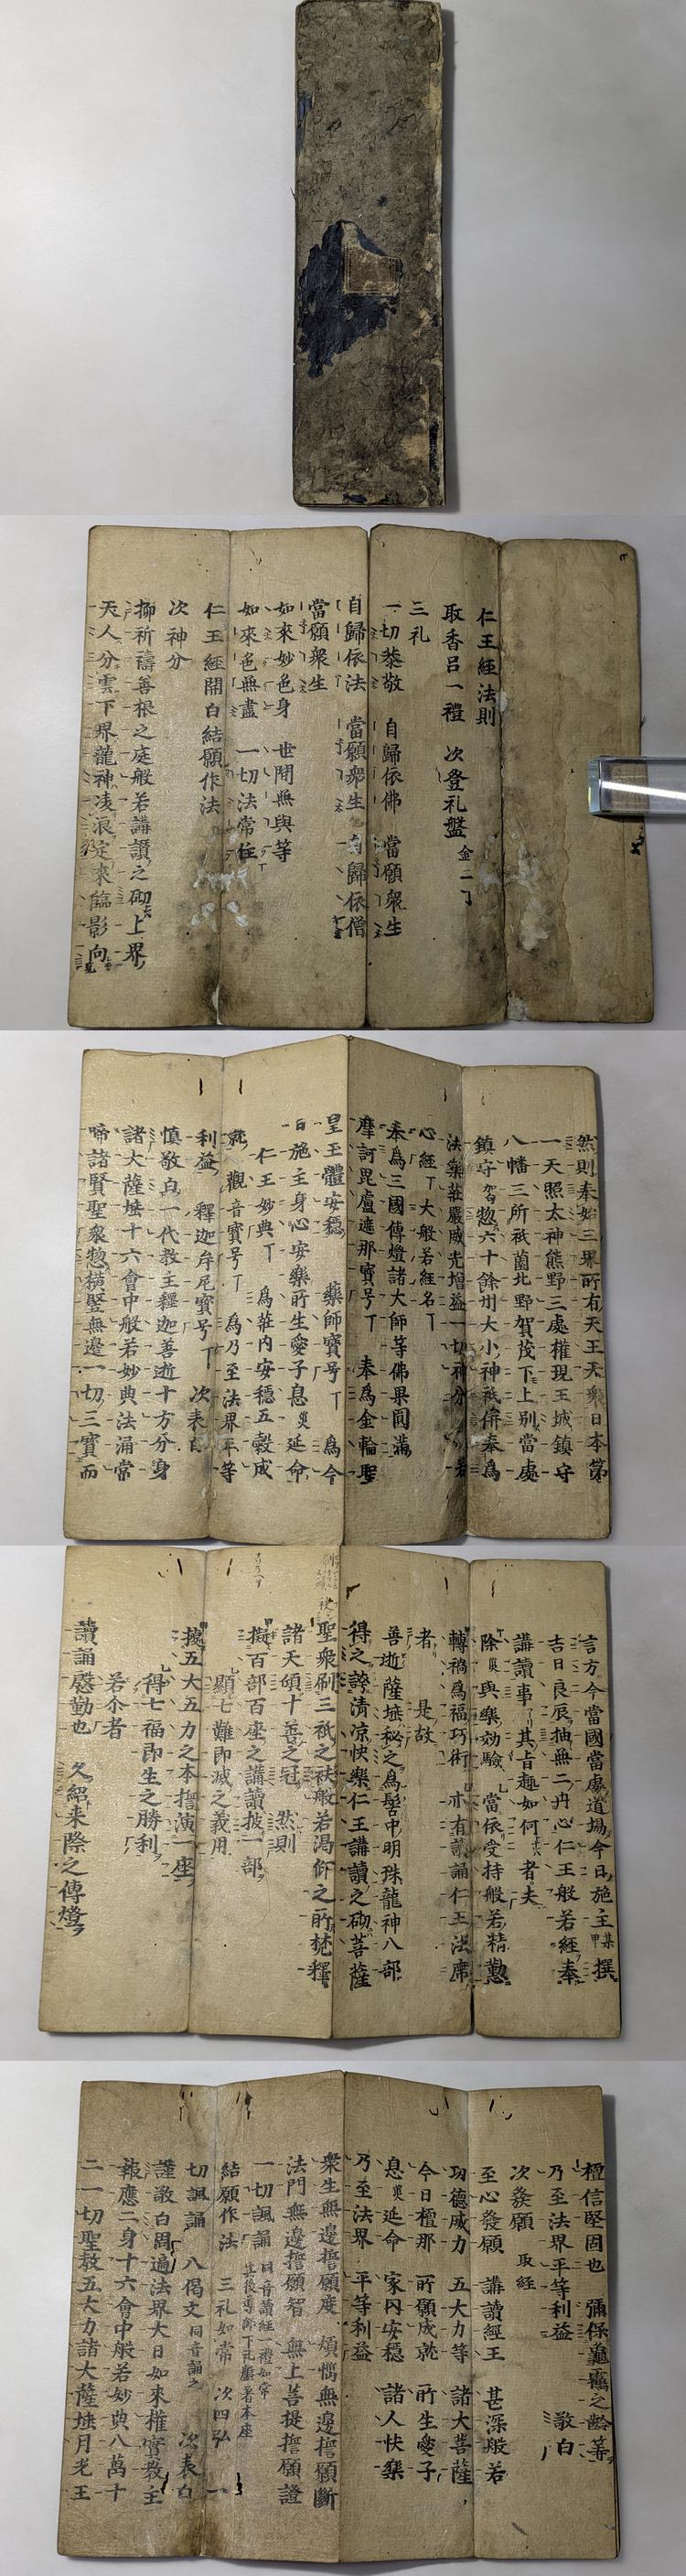 仁王經法則
取香呂一禮 次登礼盤 金二丁
三礼
一切恭敬 自歸依佛 當願衆生
自歸依法 當願衆生 自歸依僧
當願衆生
如來妙色身 世間無與等
如來色無盡 一切法常住
仁王經開白結願作法
次神分
抑祈禱善根之庭般若講讀之砌上界
天人分雲下界龍神凌浪定來臨影向
然則奉始三界所有天王天衆日本第
一天照太神熊野三處權現王城鎮守
八幡三所祇薗北野賀茂下上別當處
鎮守惣六十餘州大小神祇併奉爲
法樂莊嚴威光增益一切神分
心經丁 大般若經名丁
奉爲三國傳燈諸大師等佛果圓滿
摩訶毘盧遮那寶号丁 奉爲金輪聖
皇玉體安穩 藥師寶号丁 爲今
日施主身心安樂所生愛子息災延命
仁王妙典丁 爲莊内安穩五穀成
就 觀音寶号丁 爲乃至法界平等
利益 釋迦牟尼寶号丁 次表白
慎敬白一代教王釋迦善逝十方分身
諸大薩埵十六會中般若妙典法涌常
啼諸賢聖衆惣橫竪無邊一切三寶而
言方今當國當處道場今日施主某甲撰
吉日良辰抽無二丹心仁王般若經奉
講讀事 其旨趣如何者夫
除災與樂効驗 當依受持般若精懃
轉禍爲福巧術 亦有諷誦仁王法席
者 是故
善逝薩埵秘之爲髻中明珠龍神八部
得之誇清凉快樂仁王講讀之砌菩薩
聖衆刷三祇之袂般若渇仰之所梵釋
諸天傾十善之冠 然則
擬百部百座之講讀披一部
顯七難即滅之義用
擬五大五力之本 演一座
得七福即生之勝利
若尒者
讀誦慇勤也 久紹来際之傳燈
檀信堅固也 彌保龜鶴之齡等
乃至法界平等利益 敬白
次發願 取經
至心發願 講讀經王 甚深般若
功德威力 五大力等 諸大菩薩
今日檀那 所願成就 所生愛子
息災延命 家内安穩 諸人快樂
乃至法界 平等利益
衆生無邊誓願度 煩惱無邊誓願斷
法門無邊誓願智 無上菩提誓願證
一切諷誦 同音讀經一禮如常
其後導師下礼盤着本座
結願作法 三礼如常 次四弘 一
切諷誦 八偈文同音誦之 次表白
謹敬白周遍法界大日如來權實教主
報應二身十六會中般若妙典八萬十
二一切聖教五大力諸大薩埵月光王